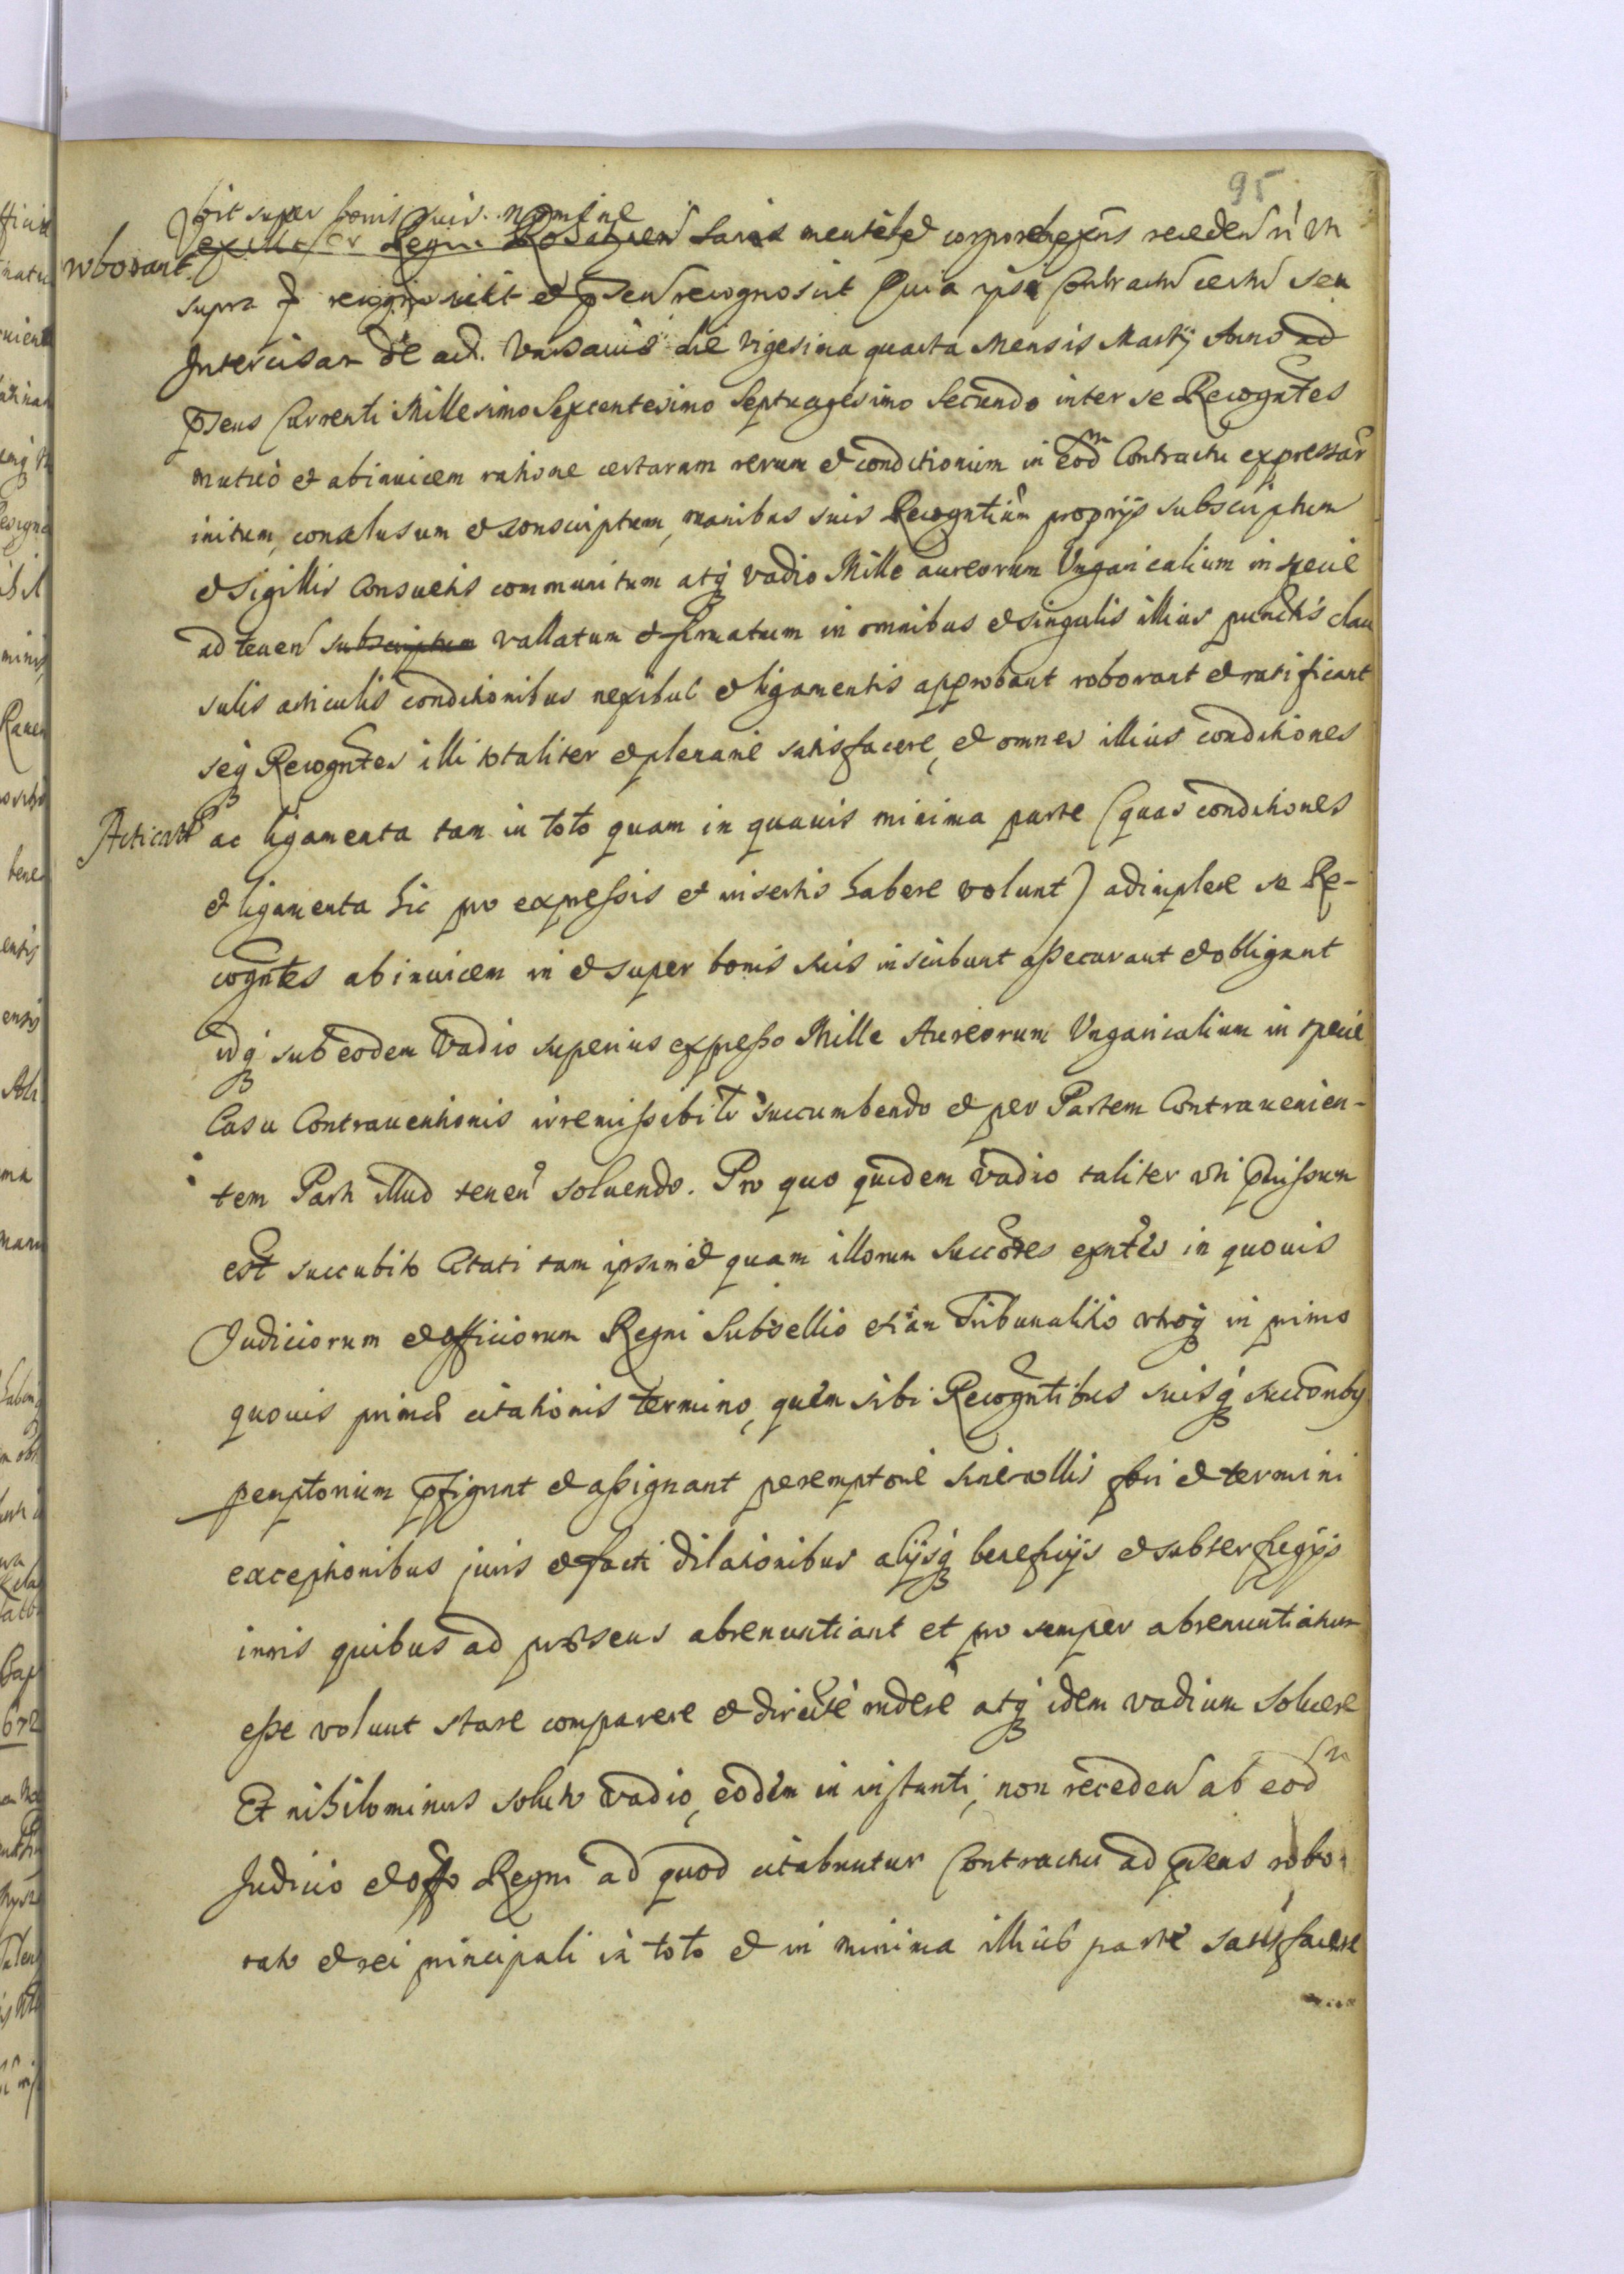 95
bit super bonis suis nomine
Regni sanus mente et corpore existens receden
roborant
supra recognovit et recognoscit Quia ipsi Contractum certum seu
Intercisam de act. Varsaviae die vigesima quarta Mensis Martij Anno ad
psens Currenti Millesimo Sexcentesimo Septuagesimo Secundo inter se Recogntes
mutuo et abinuicem ratione certarum rerum et conditionum in eodm Contractu expressar
initum, conclusum et conscriptum, manibus suis Recogntium proprijs subscriptum
et sigillis consuetis communitum atq vadio Mille aureorum Vngaricalium in specie
ad tenen subscriptum vallatum et firmatum in omnibus et singulis illius punctis clau
sulis articulis conditionibus nexibus et ligamentis approbant roborant et ratificant
seq Recogntes illi totaliter et plenarie satisfacere, et omnes illius conditiones
Acticatt ac ligamenta tam in toto quam in quauis minima parte (quas conditiones
et ligamenta hic pro expressis et insertis habere volunt) adimplere se Re-
cogntes abinuicem in et super bonis suis inscribunt assecurant et obligant
idq sub eodem vadio superius expresso Mille Aureorum Vngaricalium in specie
Casu Contrauentionis irremissibilr succumbendo et per Partem Contrauenien-
tem Parti illud tenen soluendo. Pro quo quidem vadio taliter vti pmissum
est succubito Citati tam ipsimet quam illorum succores exntes in quouis
Judiciorum et officiorum Regni Subsellio etiam Tribunalitio vtroq in primo
quouis primae citationis termino, quem sibi Recogntibus suisq succorib
pemptorium pfigunt et assignant peremptorie sine vllis fori et termini
exceptionibus juris et facti dilationibus alijsq beneficijs et subterfugijs
iuris quibus ad praesens abrenuntiant et pro semper abrenuntiatum
esse volunt stare comparere et directe rndere atq idem vadium soluere
Et nihilominus soluto vadio, eodem in instanti, non receden ab eodm
Judicio et offo Regni ad quod citabuntur Contractui ad psens robo-
rato et rei principali in toto et in minima illius parte satisfacere